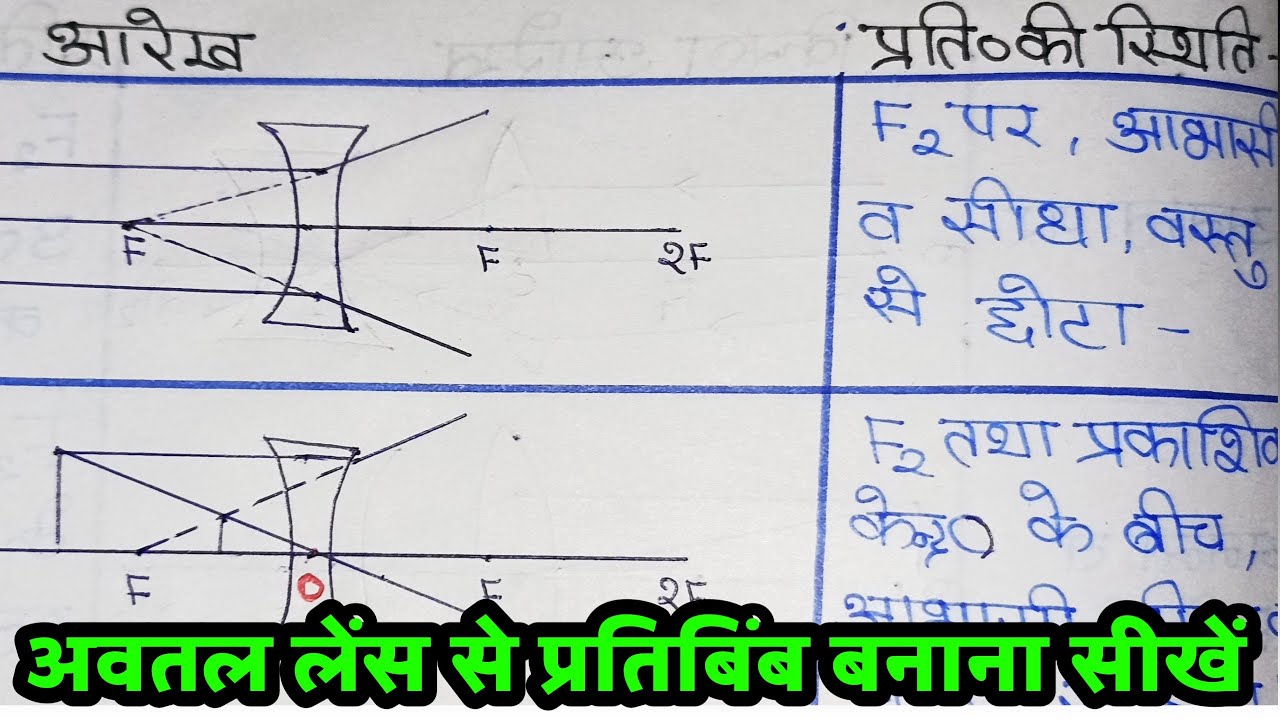 आरेख
प्रति०की स्थिति-
F₂ पर, आभासी
व सीधा, वस्तु
से छोटा-
F F २F
F₂ तथा प्रकाशिक
केन्द्र० के बीच,
F O F २F
अवतल लेंस से प्रतिबिंब बनाना सीखें